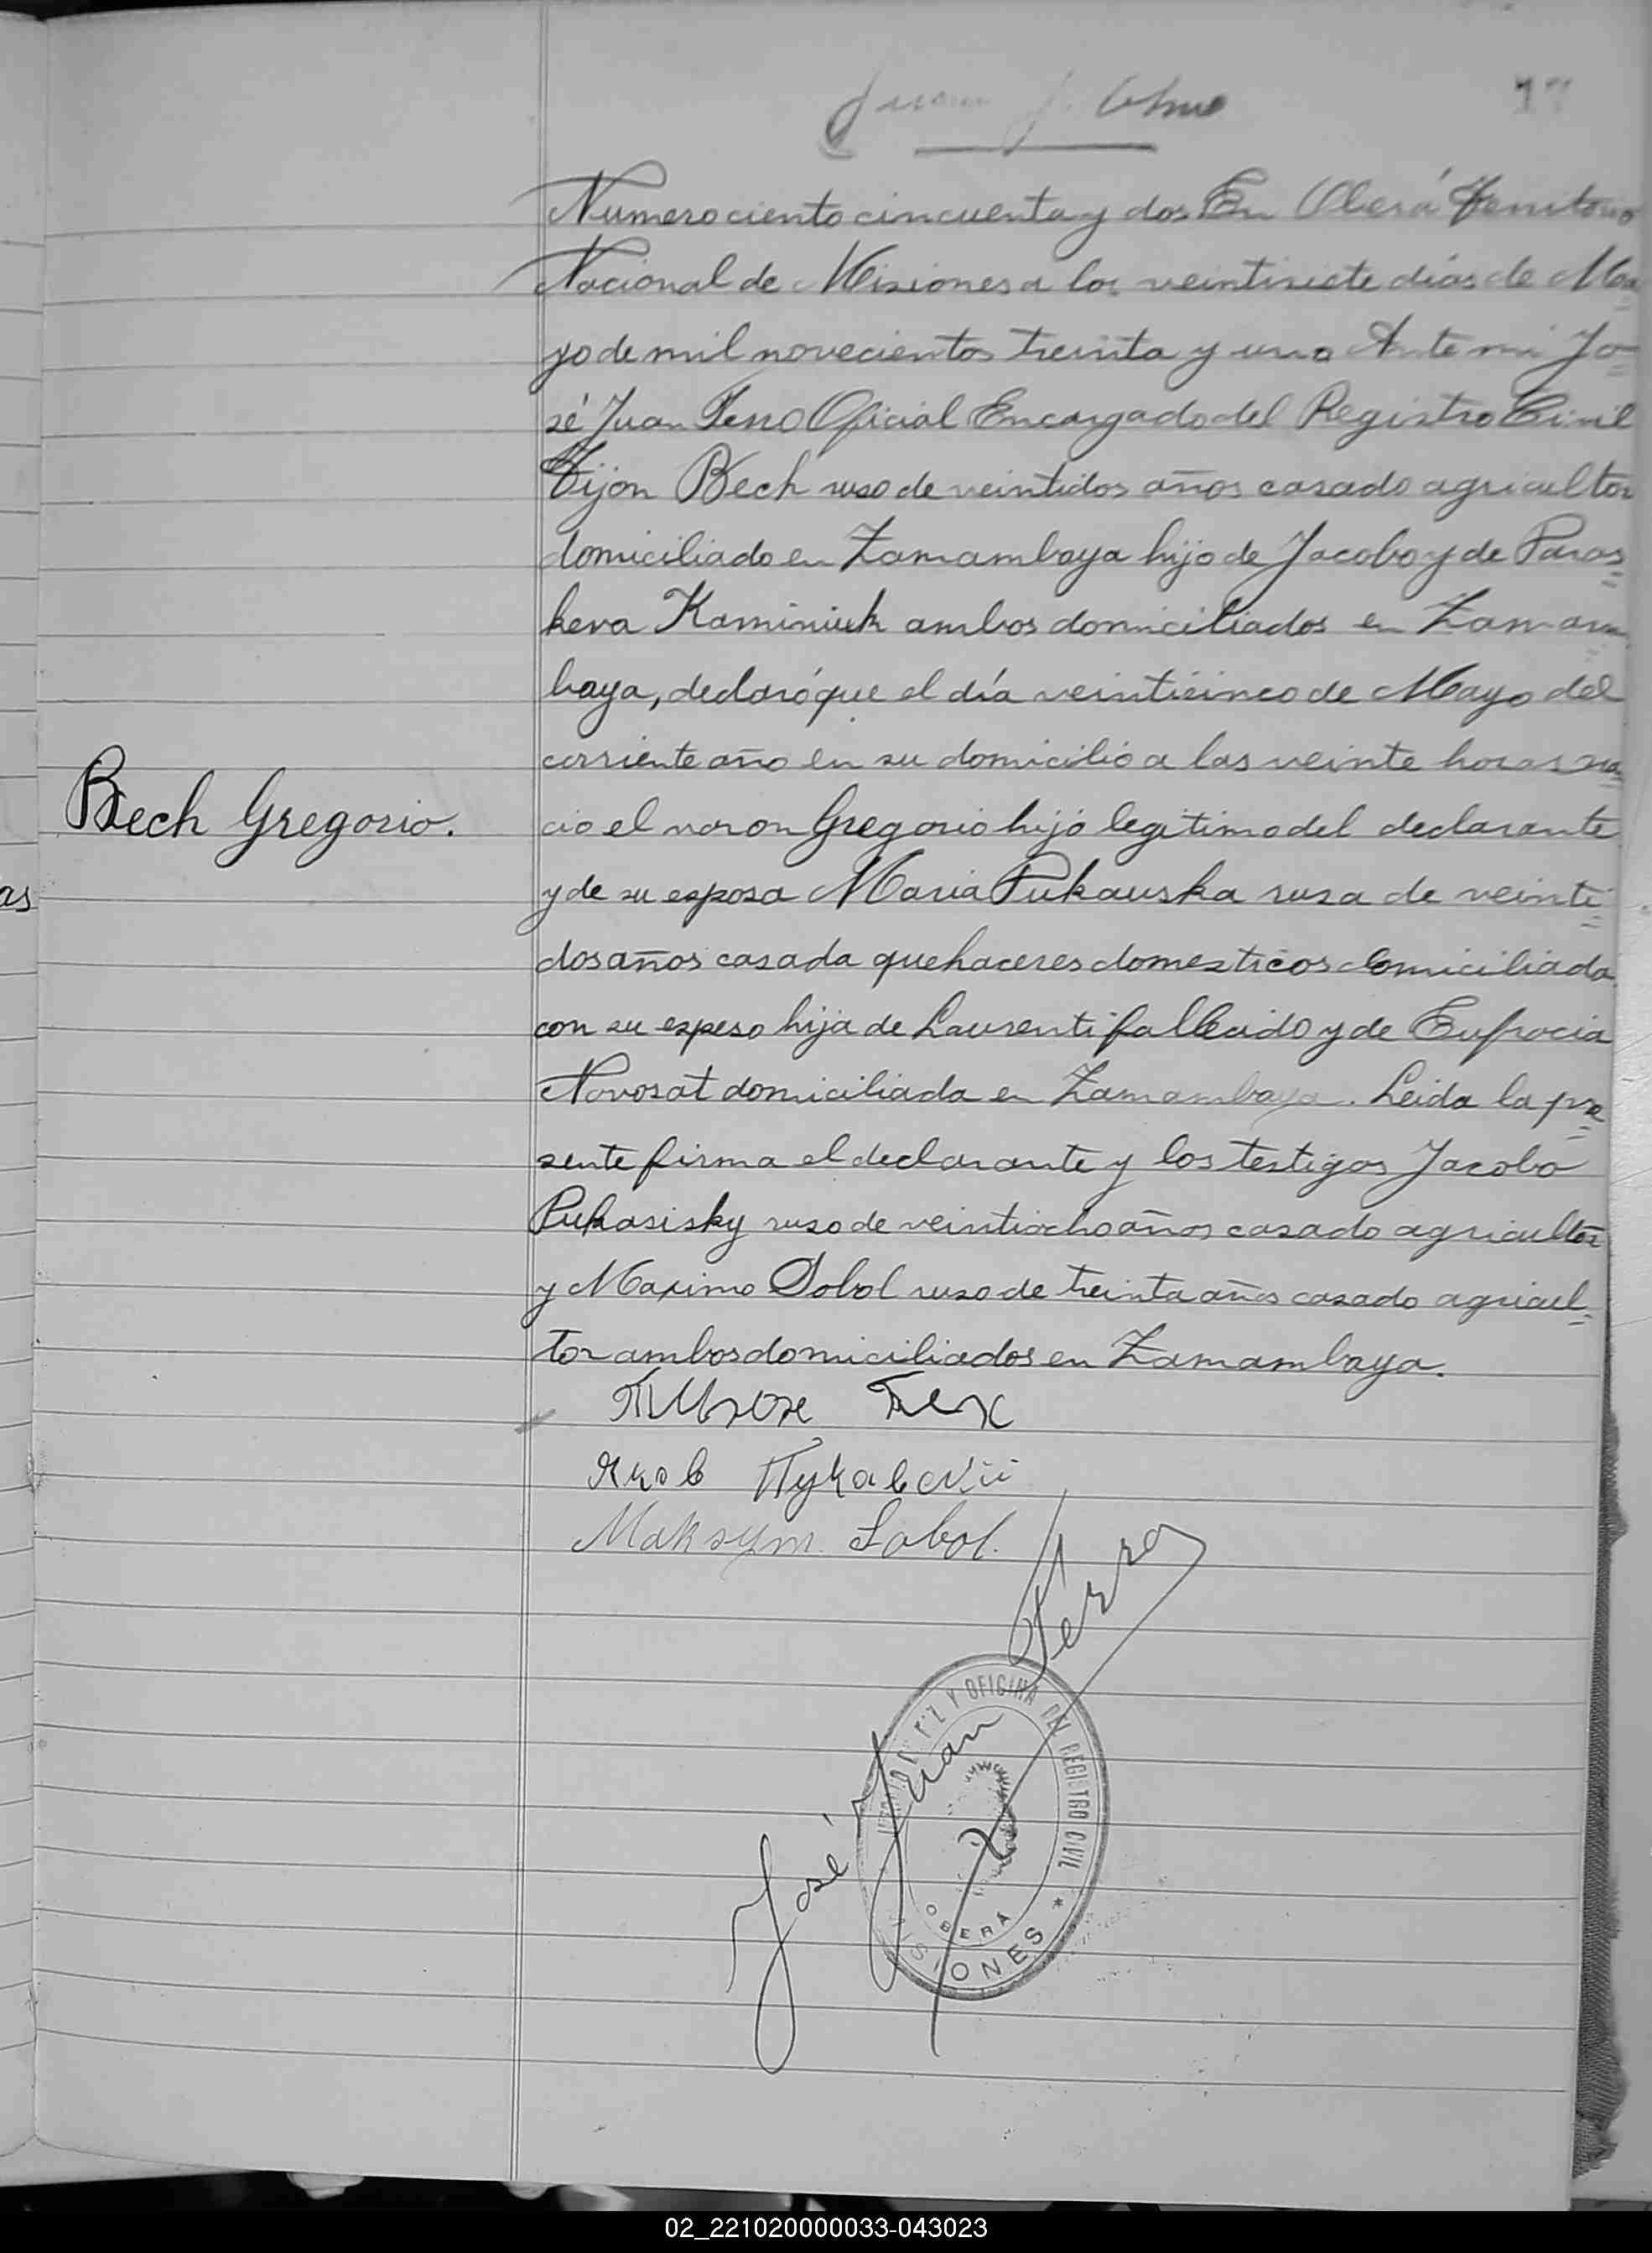 Juan J.
17
Numero ciento cincuenta y dos En Oberá Territorio
Nacional de Misiones a los veintisiete días de Ma=
yo de mil novecientos treinta y uno Ante mi Jo=
sé Juan Ferro Oficial Encargado del Registro Civil
Tijon Bech ruso de veintidos años casado agricultor
domiciliado en Zamambaya hijo de Jacobo y de Paras=
keva Kaminiuk ambos domiciliados en Zamam=
baya, declaró que el día veinticinco de Mayo del
corriente año en su domicilio a las veinte horas na=
Bech Gregorio.
cio el varon Gregorio hijo legitimo del declarante
y de su esposa Maria Pukauska rusa de veinti=
as
dos años casada quehaceres domesticos domiciliada
con su espeso hija de Laurenti fallecido y de Eufrocia
Novosat domiciliada en Zamambaya. Leida la pre=
sente firma el declarante y los testigos Jacobo
Pukasisky ruso de veintiocho años casado agricultor
y Maximo Sobol ruso de treinta años casado agricul=
tor ambos domiciliados en Zamambaya.
Тихон Бех
Яков Пукавский
Maksym Sobol.
José Juan Ferro
Y OFICINA DEL REGISTRO CIVIL
OBERÁ
MISIONES *
02_221020000033-043023